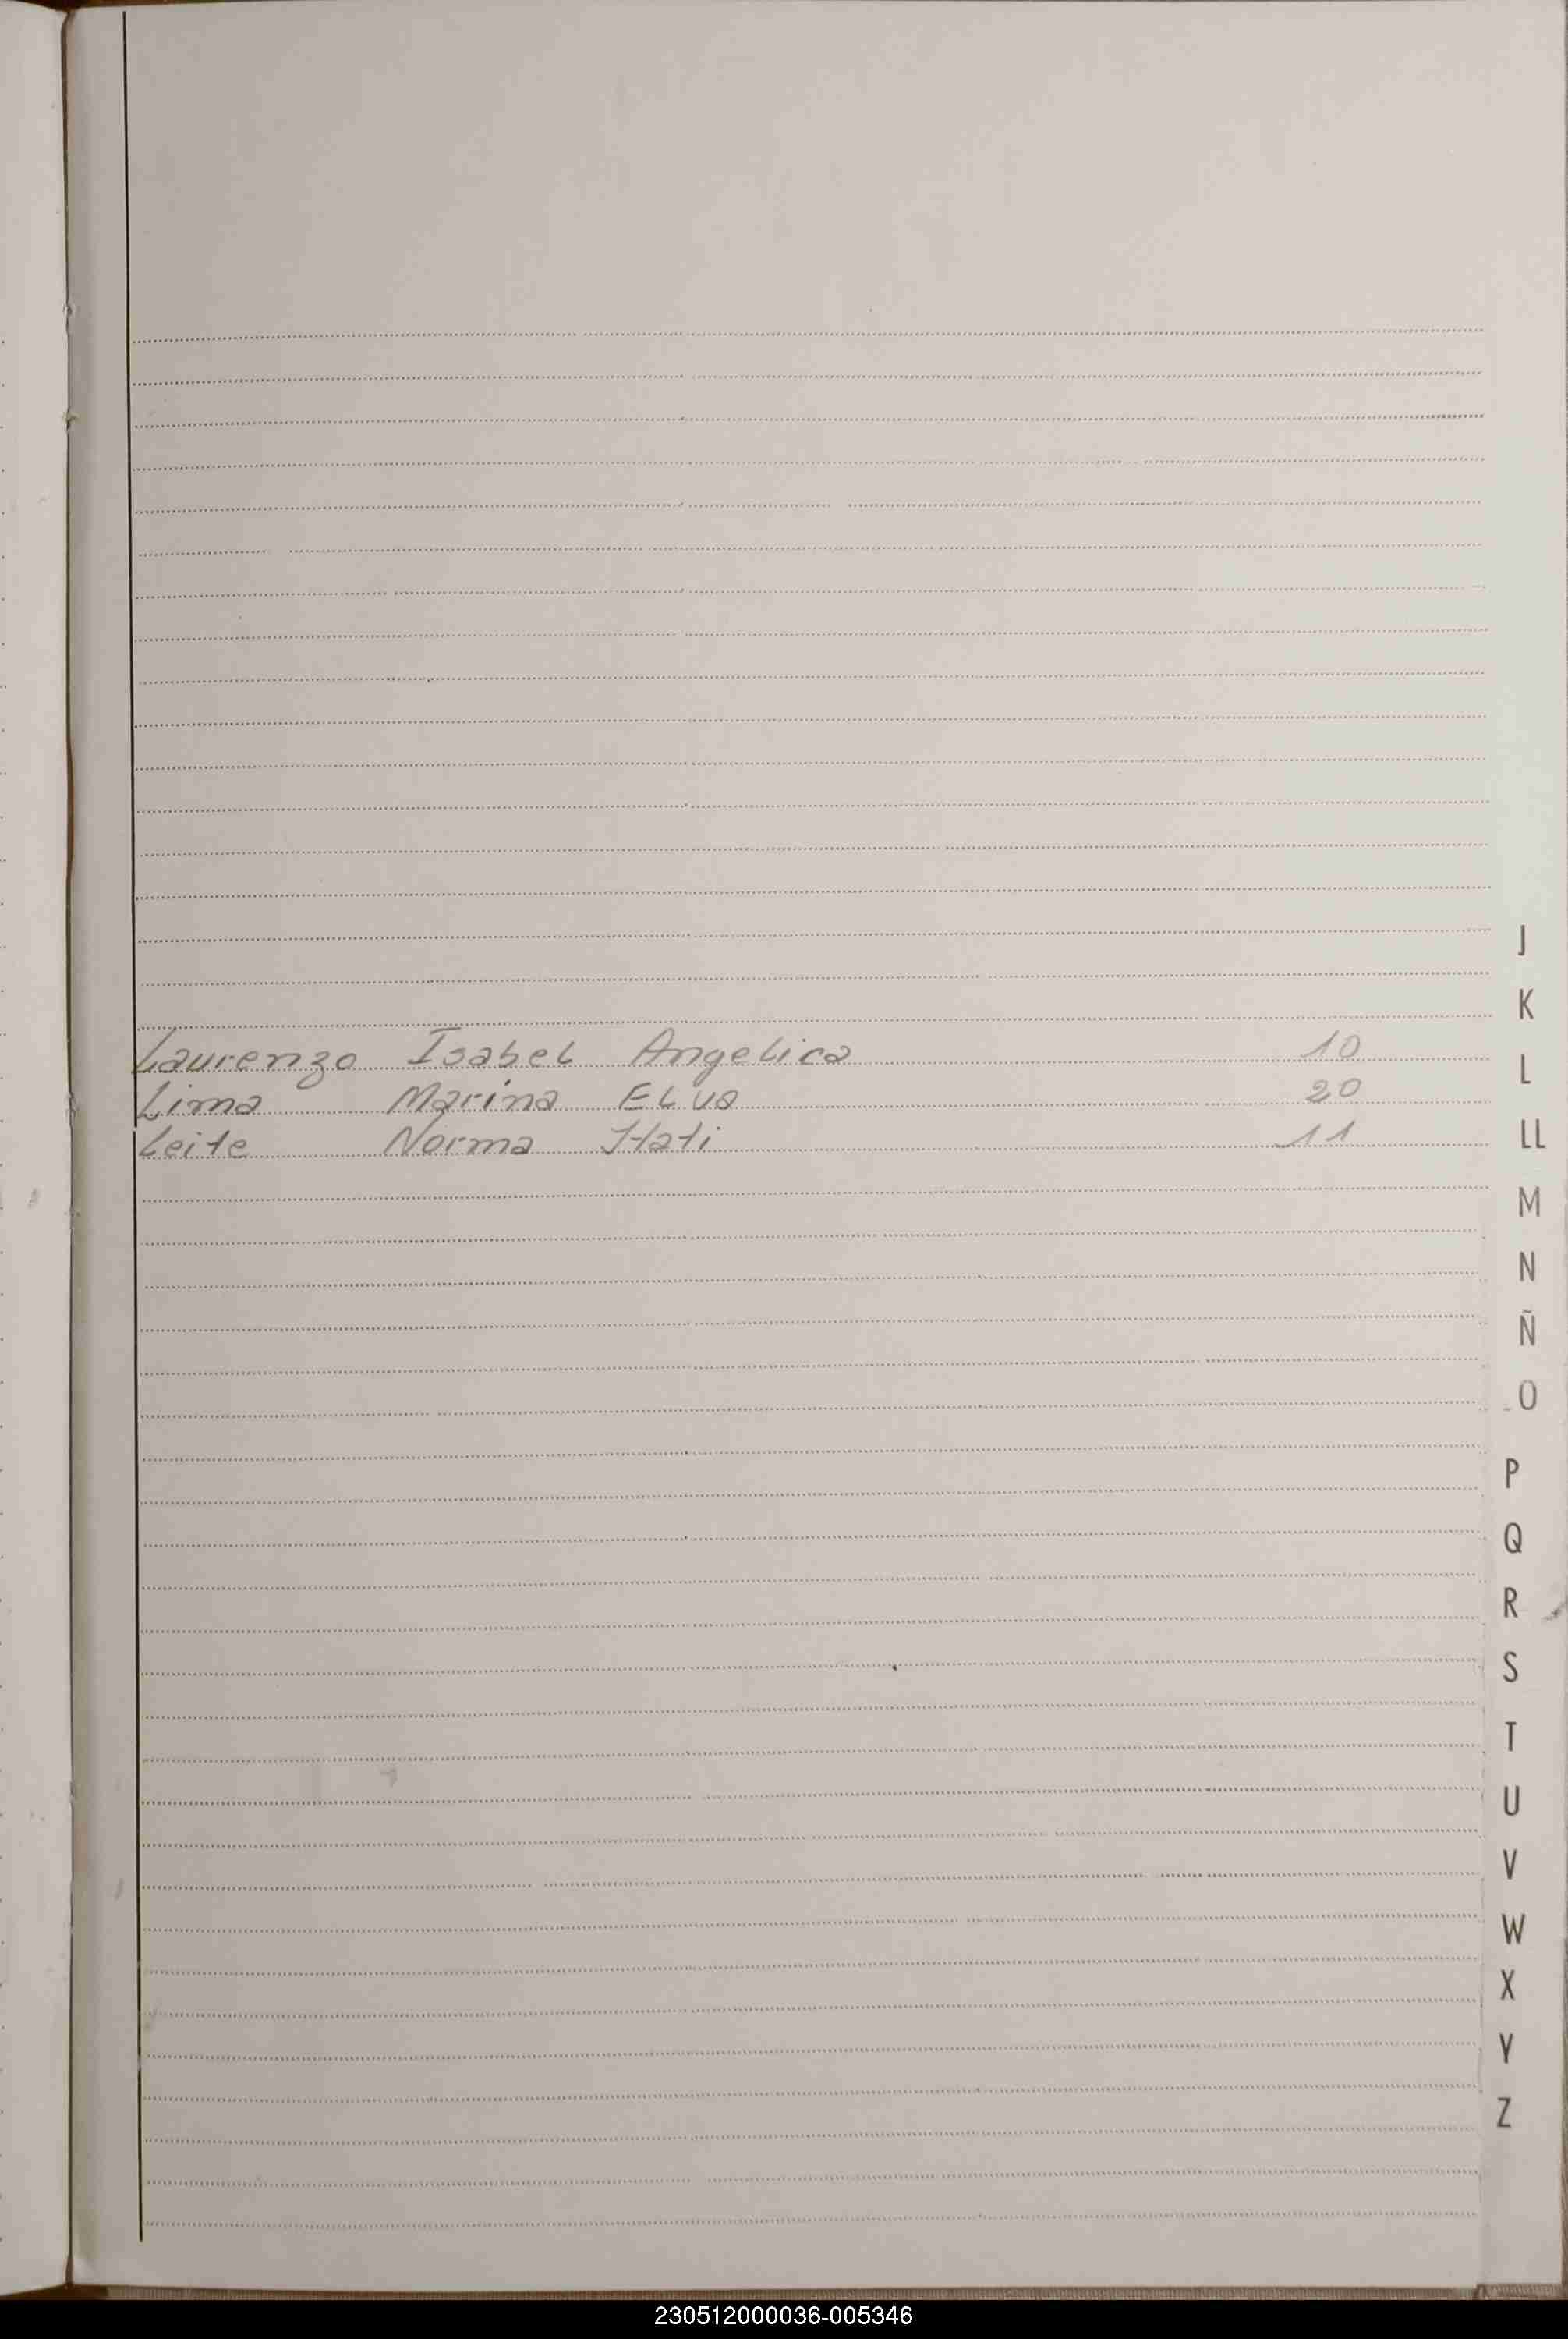 Laurenzo Isabel Angelica 10
Lima Marina Elva 20
Leite Norma Itati 11
J
K
L
LL
M
N
Ñ
O
P
Q
R
S
T
U
V
W
X
Y
Z
230512000036-005346